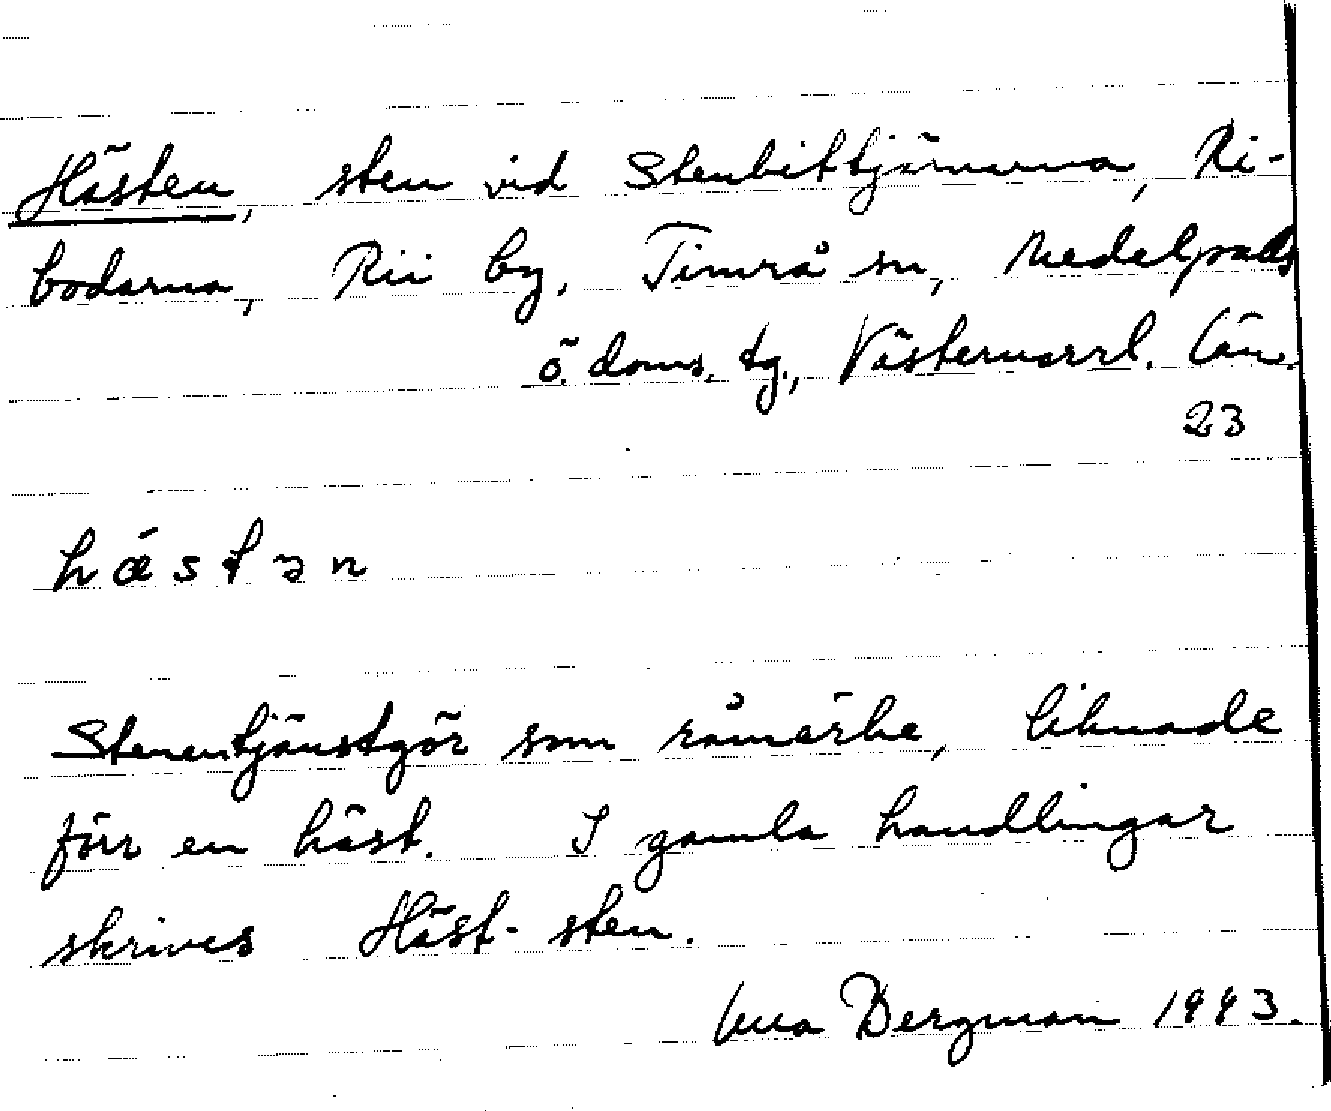 Hästen, sten vid Stenbittjärnarna, Ri-
bodarna, Rii by, Timrå sn, Medelpads
ö. doms. tg., Västernorrl. län.
23
hästən
Stenen tjänstgör som råmärke, liknade
förr en häst. I gamla handlingar
skrives Häst-sten.
Bergman 1943.